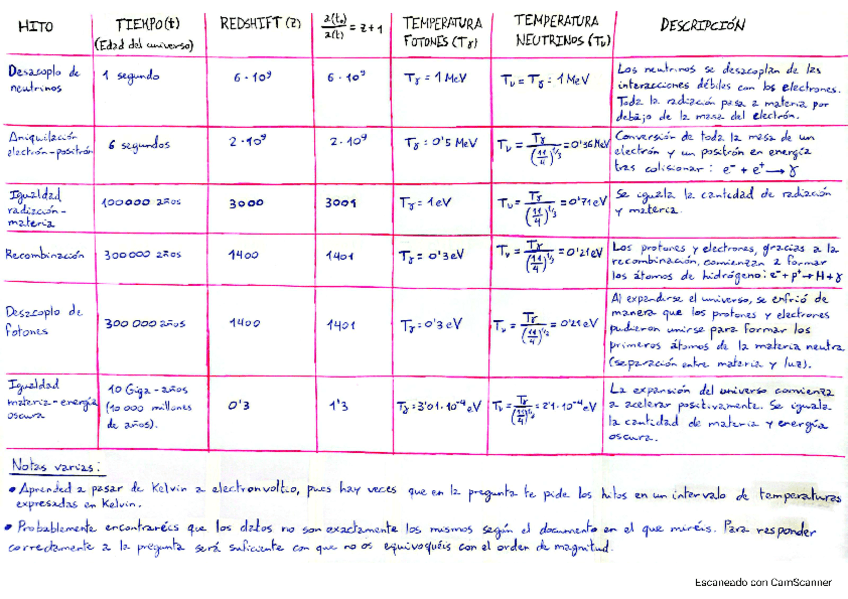 HITO
TIEMPO (t)
(Edad del universo)
REDSHIFT (Z)
a(t₀)/a(t) = z + 1
TEMPERATURA
FOTONES (Tγ)
TEMPERATURA
NEUTRINOS (Tν)
DESCRIPCIÓN
Desacoplo de
neutrinos
1 segundo
6·10⁹
6·10⁹
Tγ = 1 MeV
Tν = Tγ = 1 MeV
Los neutrinos se desacoplan de las
interacciones débiles con los electrones.
Toda la radiación pasa a materia por
debajo de la masa del electrón.
Aniquilación
electrón-positrón
6 segundos
2·10⁹
2·10⁹
Tγ = 0'5 MeV
Tν = Tγ/(11/4)^1/3 = 0'36 MeV
Conversión de toda la masa de un
electrón y un positrón en energía
tras colisionar: e⁻ + e⁺ → γ
Igualdad
radiación-
materia
100000 años
3000
3001
Tγ = 1 eV
Tν = Tγ/(11/4)^1/3 = 0'71 eV
Se iguala la cantidad de radiación
y materia.
Recombinación
300000 años
1400
1401
Tγ = 0'3 eV
Tν = Tγ/(11/4)^1/3 = 0'21 eV
Los protones y electrones, gracias a la
recombinación, comienzan a formar
los átomos de hidrógeno: e⁻ + p⁺ → H + γ
Desacoplo de
fotones
300 000 años
1400
1401
Tγ = 0'3 eV
Tν = Tγ/(11/4)^1/2 = 0'21 eV
Al expandirse el universo, se enfrió de
manera que los protones y electrones
pudieron unirse para formar los
primeros átomos de la materia neutra
(separación entre materia y luz).
Igualdad
materia-energía
oscura
10 Giga-años
(10 000 millones
de años).
0'3
1'3
Tγ = 3'01·10⁻⁴ eV
Tν = Tγ/(11/4)^1/3 = 2'1·10⁻⁴ eV
La expansión del universo comienza
a acelerar positivamente. Se iguala
la cantidad de materia y energía
oscura.
Notas varias:
• Aprended a pasar de Kelvin a electronvoltio, pues hay veces que en la pregunta te pide los hitos en un intervalo de temperaturas
expresadas en Kelvin.
• Probablemente encontraréis que los datos no son exactamente los mismos según el documento en el que miréis. Para responder
correctamente a la pregunta será suficiente con que no os equivoquéis con el orden de magnitud.
Escaneado con CamScanner